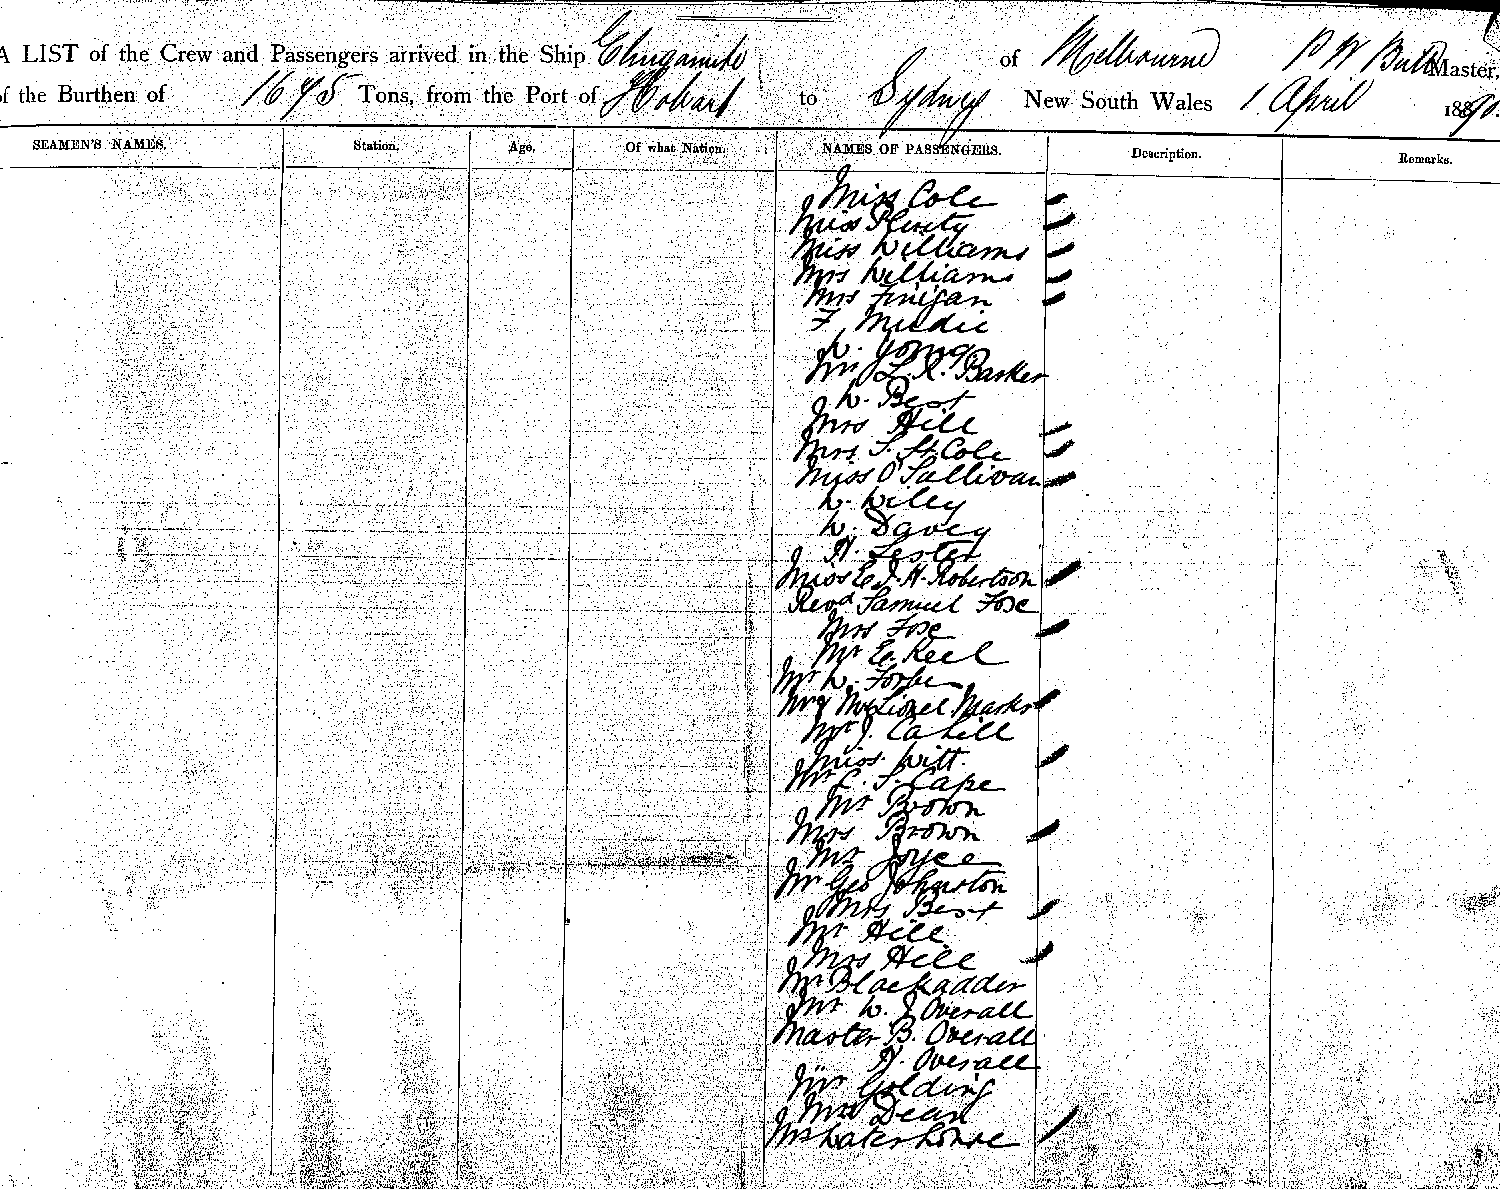 A LIST of the Crew and Passengers arrived in the Ship Elingamite of Melbourne P W Bull Master,
of the Burthen of 1675 Tons, from the Port of Hobart to Sydney New South Wales 1 April 1890.
SEAMEN'S NAMES. Station. Age. Of what Nation. NAMES OF PASSENGERS. Description. Remarks.
Miss Cole
Miss
Miss Williams
Mrs Williams
Mrs Finigan
F
W. Young
Mr L. R. Barker
W. Best
Mrs Hill
Mrs F. St. Cole
Miss O'Sullivan
W. Wiley
W. Davey
H. Lester
Miss E J. H. Robertson
Revd Samuel Fox
Mrs Fox
Mr E. Keel
Mr W.
Lionel Marks
Mr J. Cahill
Miss Witt.
Mr C. F. Cape
Mr Brown
Mrs Brown
Mr Joyce
Mr Geo Johnston
Mrs Best
Mr Hill
Mrs Hill
Mr Blackadder
Mr W. J Overall
Master B. Overall
H. Overall
Mr Golding
Mr Dean
Waterhouse